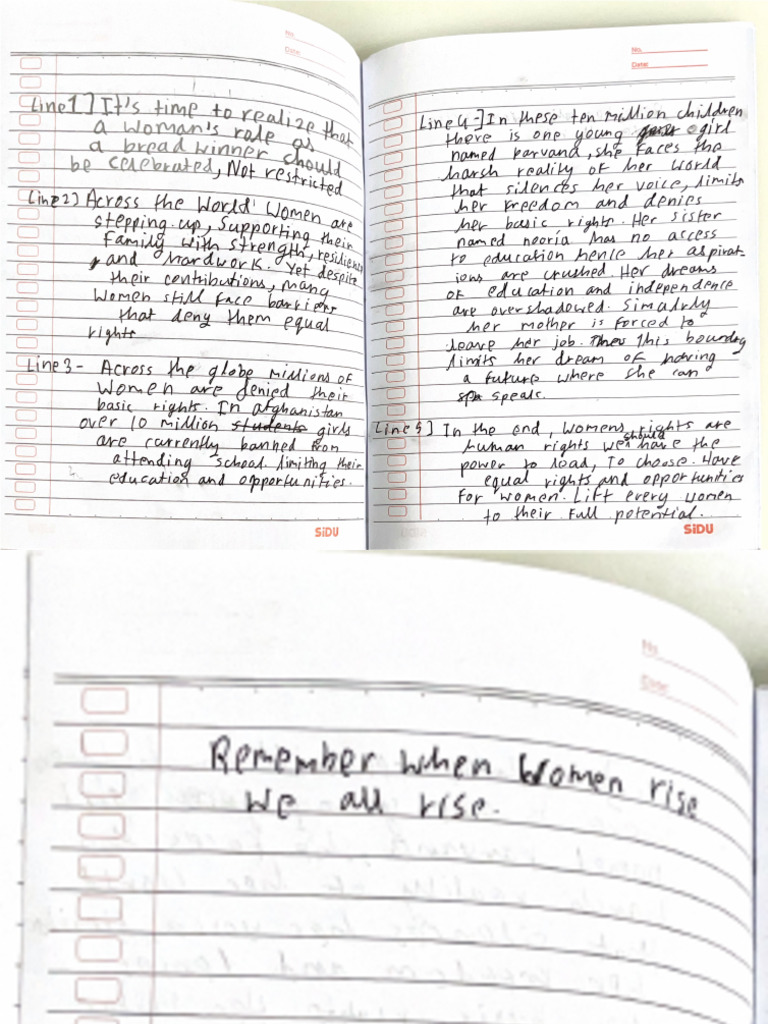 No.
Date:
Line 1] It's time to realize that
a woman's role as
a bread winner should
be celebrated, Not restricted
Line 2) Across the World' Women are
stepping up, Supporting their
Family with strength, resilience
, and hardwork. Yet despite
their contributions, many
Women still face barriers
that deny them equal
rights
Line 3 - Across the globe millions of
Women are denied their
basic rights. In afghanistan
over 10 million students girls
are currently banned from
attending school limiting their
education and opportunities.
SiDU
No.
Date:
Line 4-] In these ten million children
there is one young girl
named Parvana, she faces the
harsh reality of her World
that silences her voice, limits
her Freedom and denies
her basic rights. Her sister
named nooria has no access
to education hence her aspirat-
ions are crushed. Her dreams
of education and independence
are overshadowed. Simalrly
her mother is forced to
leave her job. This boundry
limits her dream of having
a future where she can
speak.
Line 5] In the end, Womens rights are
human rights we should have the
power to lead, To choose. Have
equal rights and opportunities
For women. Lift every women
to their Full potential.
SiDU
No.
Date:
Remember when Women rise
We all rise.